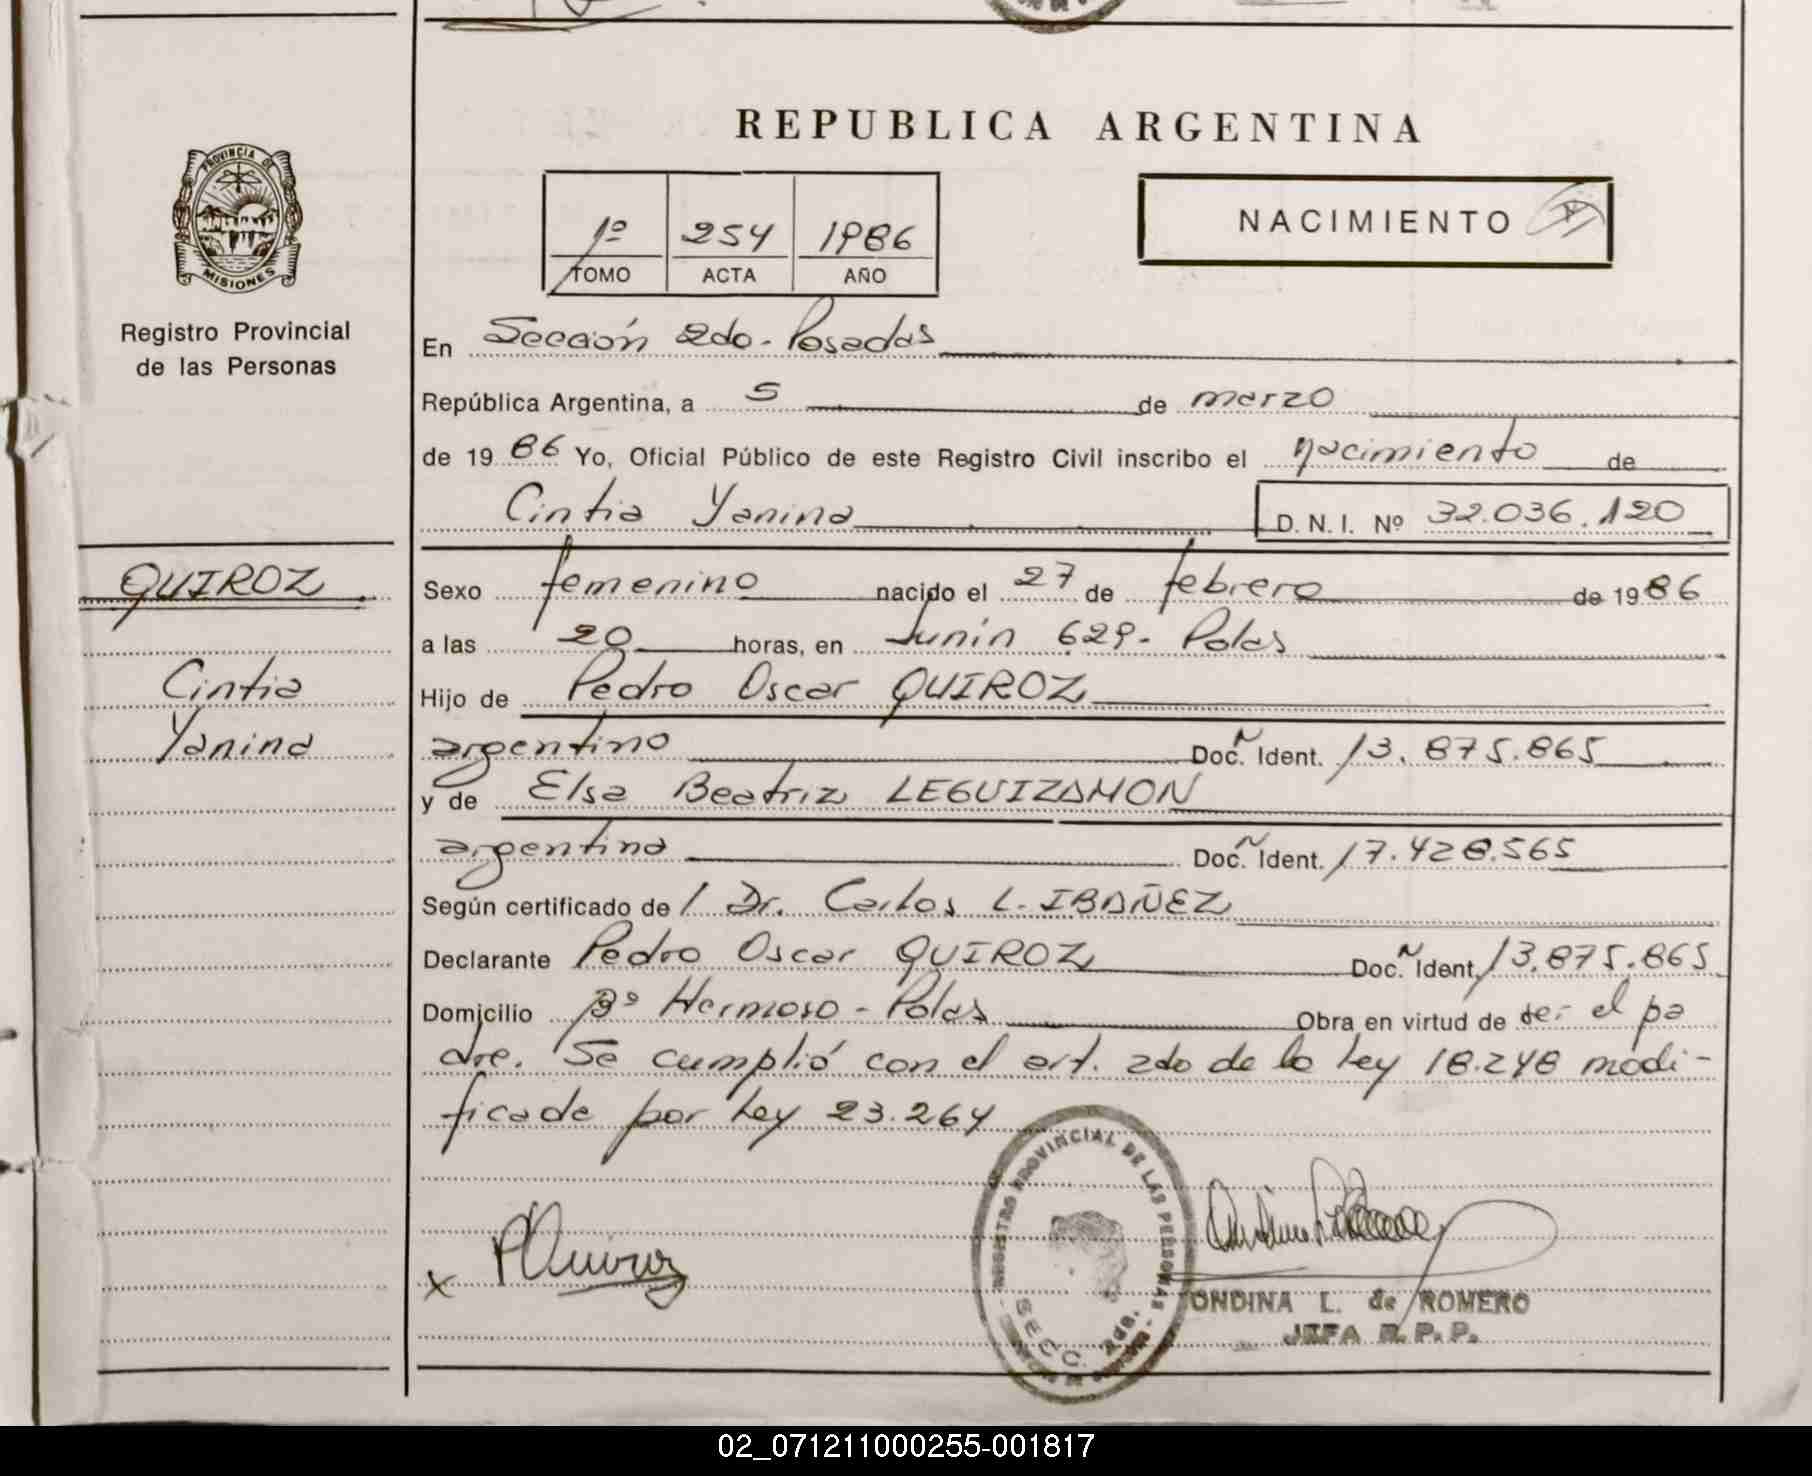 REPUBLICA ARGENTINA
PROVINCIA DE
MISIONES
Registro Provincial
de las Personas
1º 254 1986
TOMO ACTA AÑO
NACIMIENTO
En Sección 2do. Posadas
República Argentina, a 5 de marzo
de 1986 Yo, Oficial Público de este Registro Civil inscribo el nacimiento de
Cintia Yanina D. N. I. Nº 32.036.120
QUIROZ
Cintia
Yanina
Sexo femenino nacido el 27 de febrero de 1986
a las 20 horas, en Junín 629- Pdas
Hijo de Pedro Oscar QUIROZ
argentino Doc. Ident. 13.875.865
y de Elsa Beatriz LEGUIZAMON
argentina Doc. Ident. 17.428.565
Según certificado de / Dr. Carlos L. IBAÑEZ
Declarante Pedro Oscar QUIROZ Doc. Ident. 13.875.865
Domicilio Bº Hermoso - Pdas Obra en virtud de ser el pa
dre. Se cumplió con el art. 2do de la Ley 18.248 modi-
ficada por Ley 23.264
REGISTRO PROVINCIAL DE LAS PERSONAS
SECC. 2da.
x PQuiroz
ONDINA L. de ROMERO
JEFA R. P. P.
02_071211000255-001817